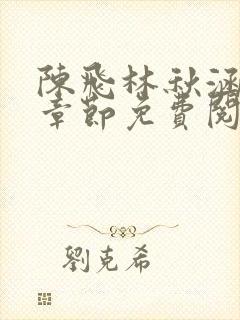 陳飛林秋涵
章節免費閱
劉克希